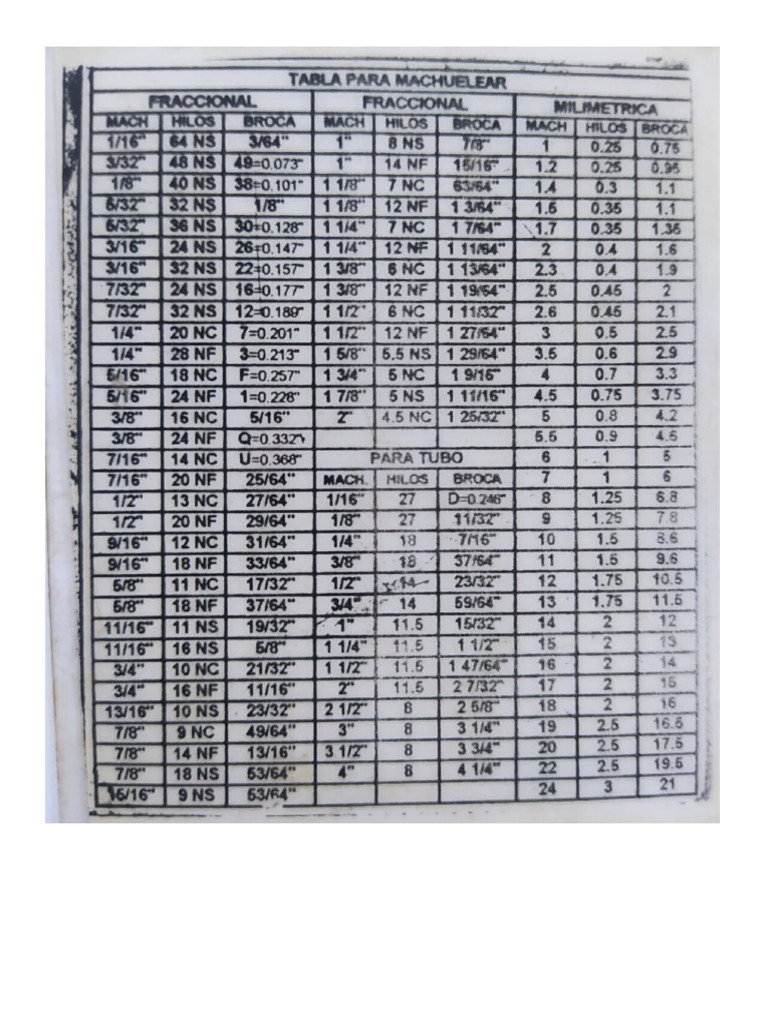 TABLA PARA MACHUELEAR
FRACCIONAL FRACCIONAL MILIMETRICA
MACH HILOS BROCA MACH HILOS BROCA MACH HILOS BROCA
1/16" 64 NS 3/64" 1" 8 NS 7/8" 1 0.25 0.75
3/32" 48 NS 49=0.073" 1" 14 NF 15/16" 1.2 0.25 0.95
1/8" 40 NS 38=0.101" 1 1/8" 7 NC 63/64" 1.4 0.3 1.1
5/32" 32 NS 1/8" 1 1/8" 12 NF 1 3/64" 1.5 0.35 1.1
5/32" 36 NS 30=0.128" 1 1/4" 7 NC 1 7/64" 1.7 0.35 1.35
3/16" 24 NS 26=0.147" 1 1/4" 12 NF 1 11/64" 2 0.4 1.6
3/16" 32 NS 22=0.157" 1 3/8" 6 NC 1 13/64" 2.3 0.4 1.9
7/32" 24 NS 16=0.177" 1 3/8" 12 NF 1 19/64" 2.5 0.45 2
7/32" 32 NS 12=0.189" 1 1/2" 6 NC 1 11/32" 2.6 0.45 2.1
1/4" 20 NC 7=0.201" 1 1/2" 12 NF 1 27/64" 3 0.5 2.5
1/4" 28 NF 3=0.213" 1 5/8" 5.5 NS 1 29/64" 3.5 0.6 2.9
5/16" 18 NC F=0.257" 1 3/4" 5 NC 1 9/16" 4 0.7 3.3
5/16" 24 NF 1=0.228" 1 7/8" 5 NS 1 11/16" 4.5 0.75 3.75
3/8" 16 NC 5/16" 2" 4.5 NC 1 25/32" 5 0.8 4.2
3/8" 24 NF Q=0.332" 5.5 0.9 4.5
7/16" 14 NC U=0.368" PARA TUBO 6 1 5
7/16" 20 NF 25/64" MACH. HILOS BROCA 7 1 6
1/2" 13 NC 27/64" 1/16" 27 D=0.246" 8 1.25 6.8
1/2" 20 NF 29/64" 1/8" 27 11/32" 9 1.25 7.8
9/16" 12 NC 31/64" 1/4" 18 7/16" 10 1.5 8.6
9/16" 18 NF 33/64" 3/8" 18 37/64" 11 1.5 9.6
5/8" 11 NC 17/32" 1/2" 14 23/32" 12 1.75 10.5
5/8" 18 NF 37/64" 3/4" 14 59/64" 13 1.75 11.5
11/16" 11 NS 19/32" 1" 11.5 15/32" 14 2 12
11/16" 16 NS 5/8" 1 1/4" 11.5 1 1/2" 15 2 13
3/4" 10 NC 21/32" 1 1/2" 11.5 1 47/64" 16 2 14
3/4" 16 NF 11/16" 2" 11.5 2 7/32" 17 2 15
13/16" 10 NS 23/32" 2 1/2" 8 2 5/8" 18 2 16
7/8" 9 NC 49/64" 3" 8 3 1/4" 19 2.5 16.5
7/8" 14 NF 13/16" 3 1/2" 8 3 3/4" 20 2.5 17.5
7/8" 18 NS 53/64" 4" 8 4 1/4" 22 2.5 19.5
15/16" 9 NS 53/64" 24 3 21